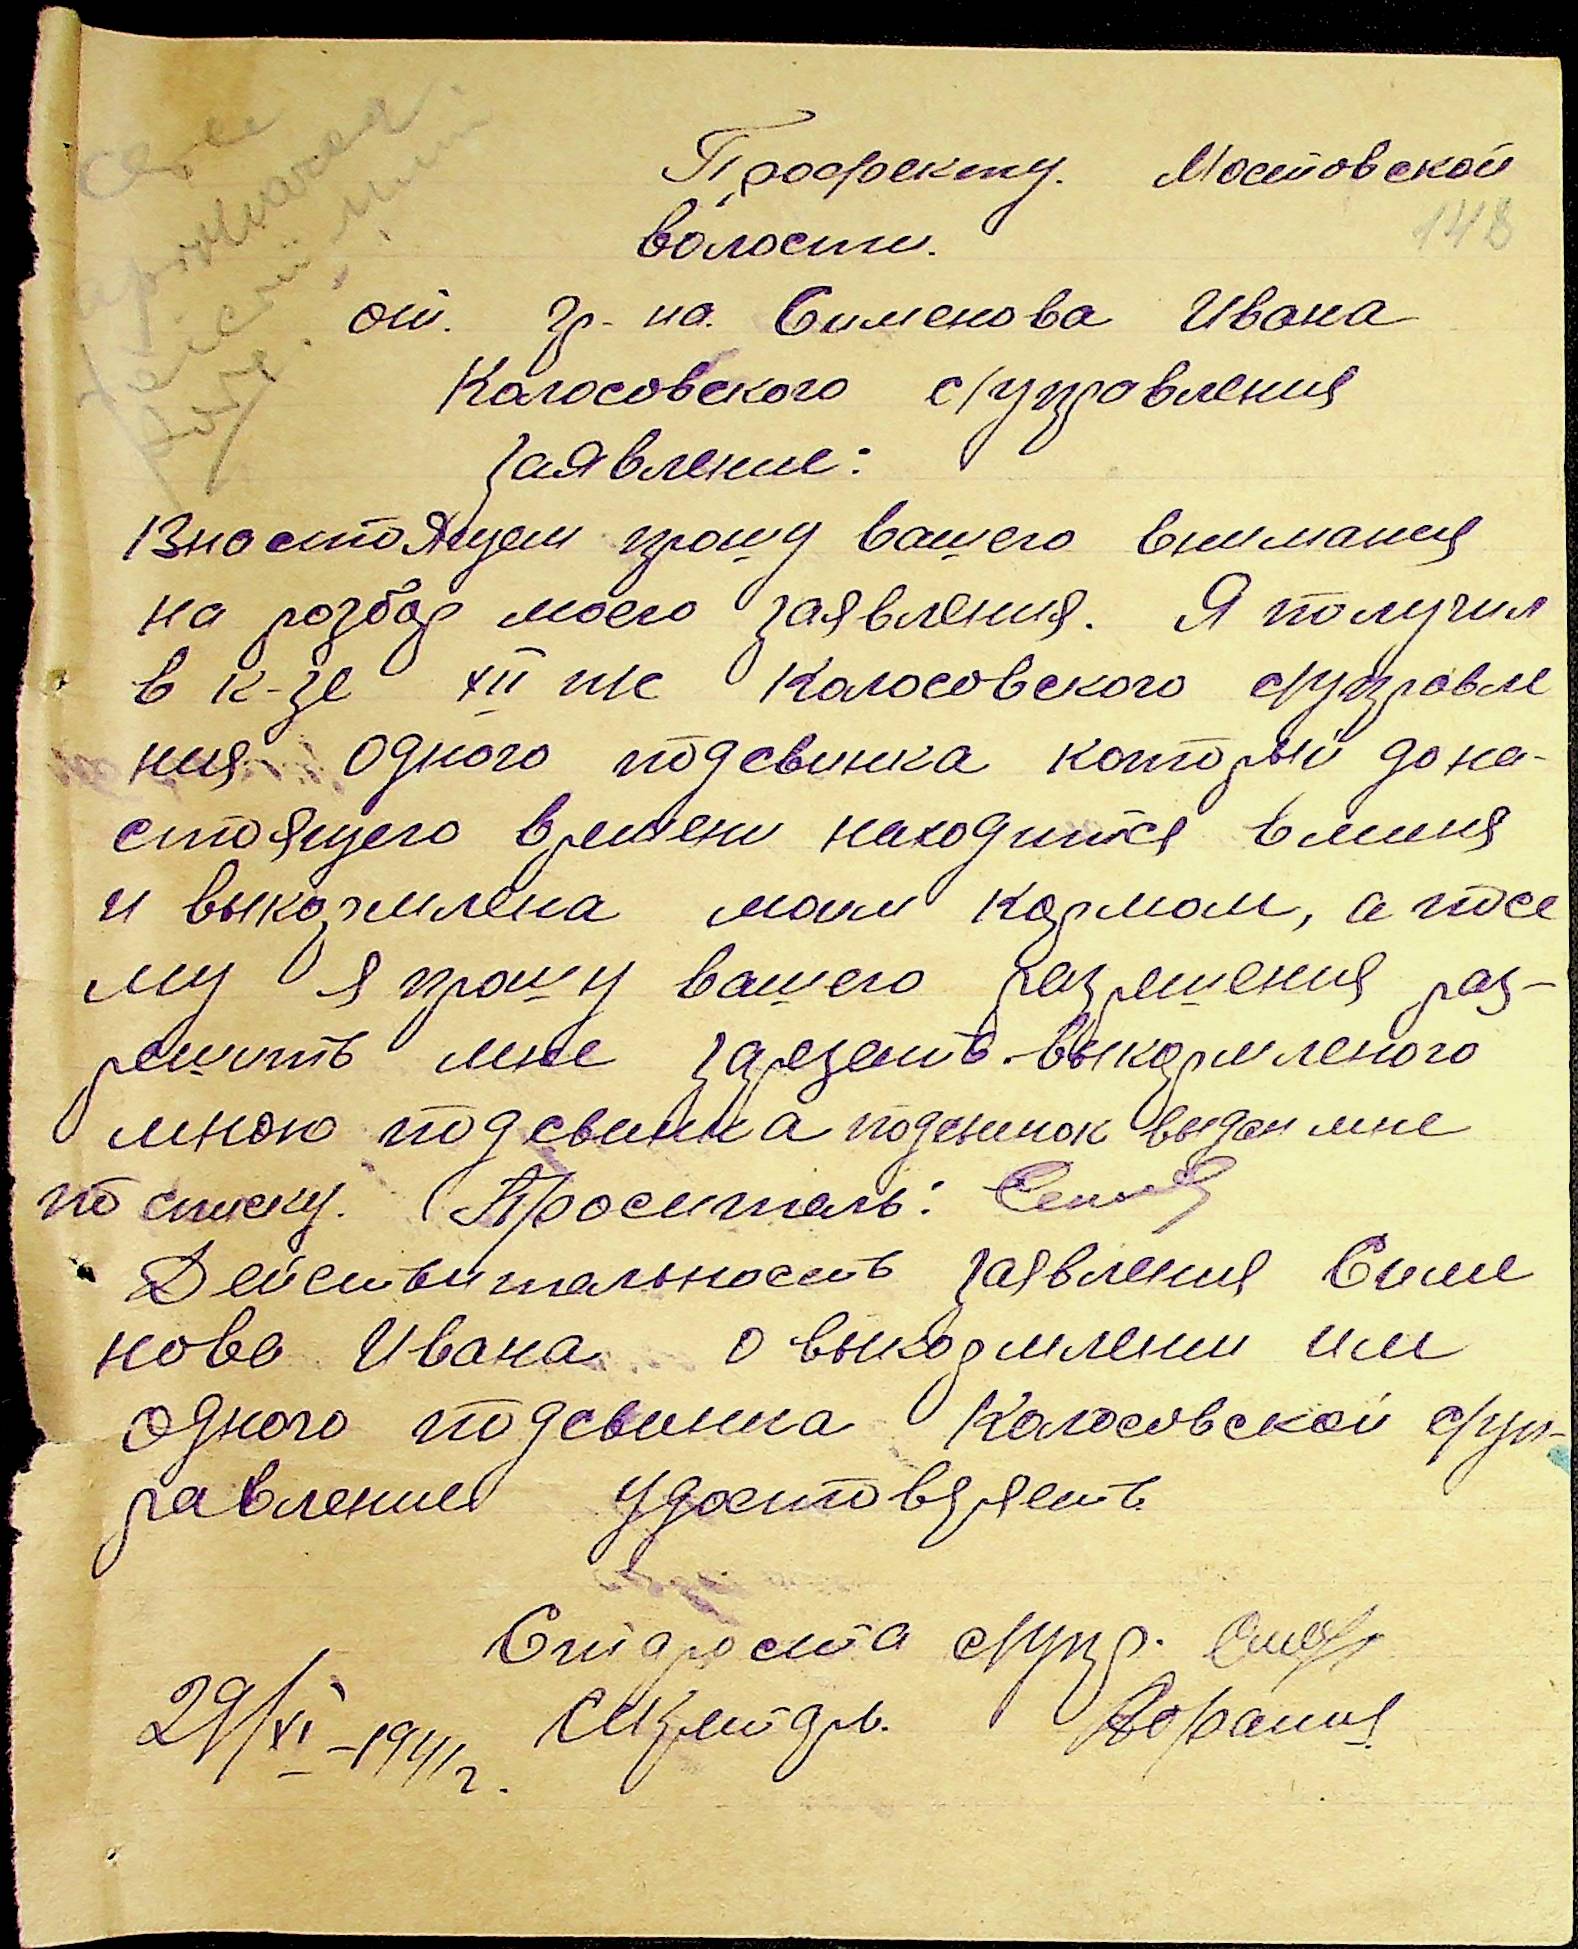 Профекту. Мостовской
148
волости.
от. гр-на. Сименова Ивана
Колосовского с/управления
Заявление:
Внастоящем прошу вашего внимания
на розбор моего заявления. Я получил
в к-зе XII Колосовского с/управле
ния одного подсвинка который дона-
стоящего времени находится вминя
и выкормлена моим кормом, а посе
му я прошу вашего разрешения раз-
решить мне зарезать выкормленого
мною подсвинка подсвинок выдан мне
по списку. Проситель:
Действительность заявления Симе
нова Ивана о выкормлении им
одного подсвинка Колосовской с/уп-
равление удостоверяеть
Староста с/упр.
29/XI-1941г. Сикретарь.